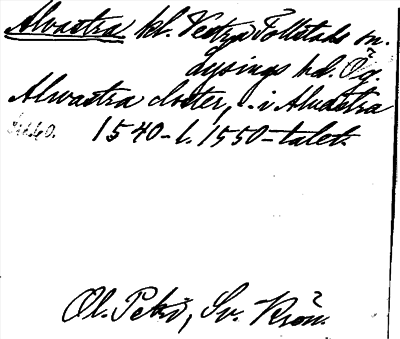 Alvastra kl. Vestra Tollstads sn.
Lysings hd. Ög.
Alwastra closter, - i Alvastra
1540- l. 1550-talet.
Ol. Petri, Sv. Krön.